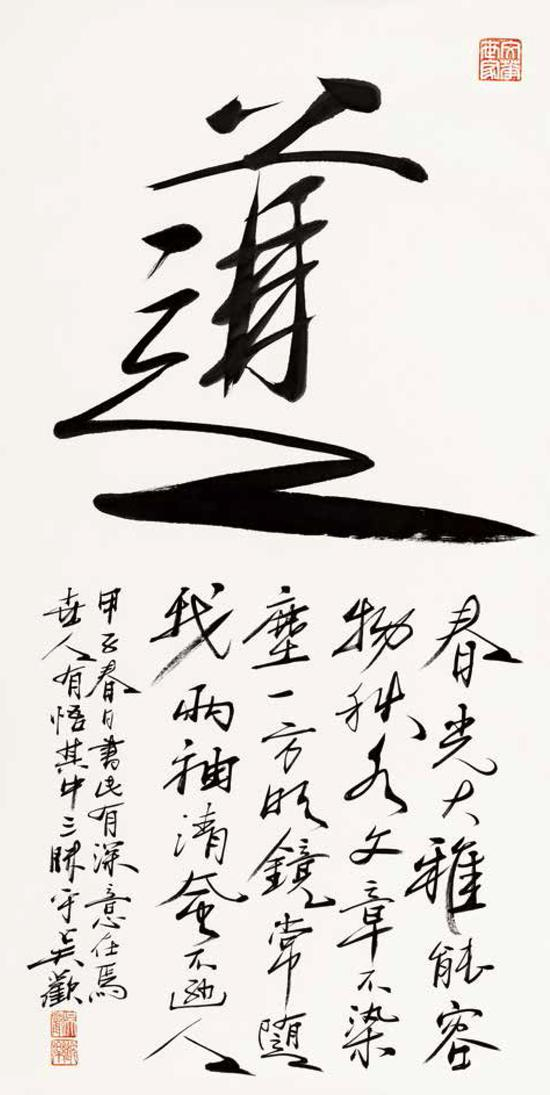 文華世家
春光大雅能容
物秋水文章不染
塵一方明鏡常隨
我兩袖清風不遜人
甲子春日書此有深意在焉
世人有悟其中三昧乎吴歡